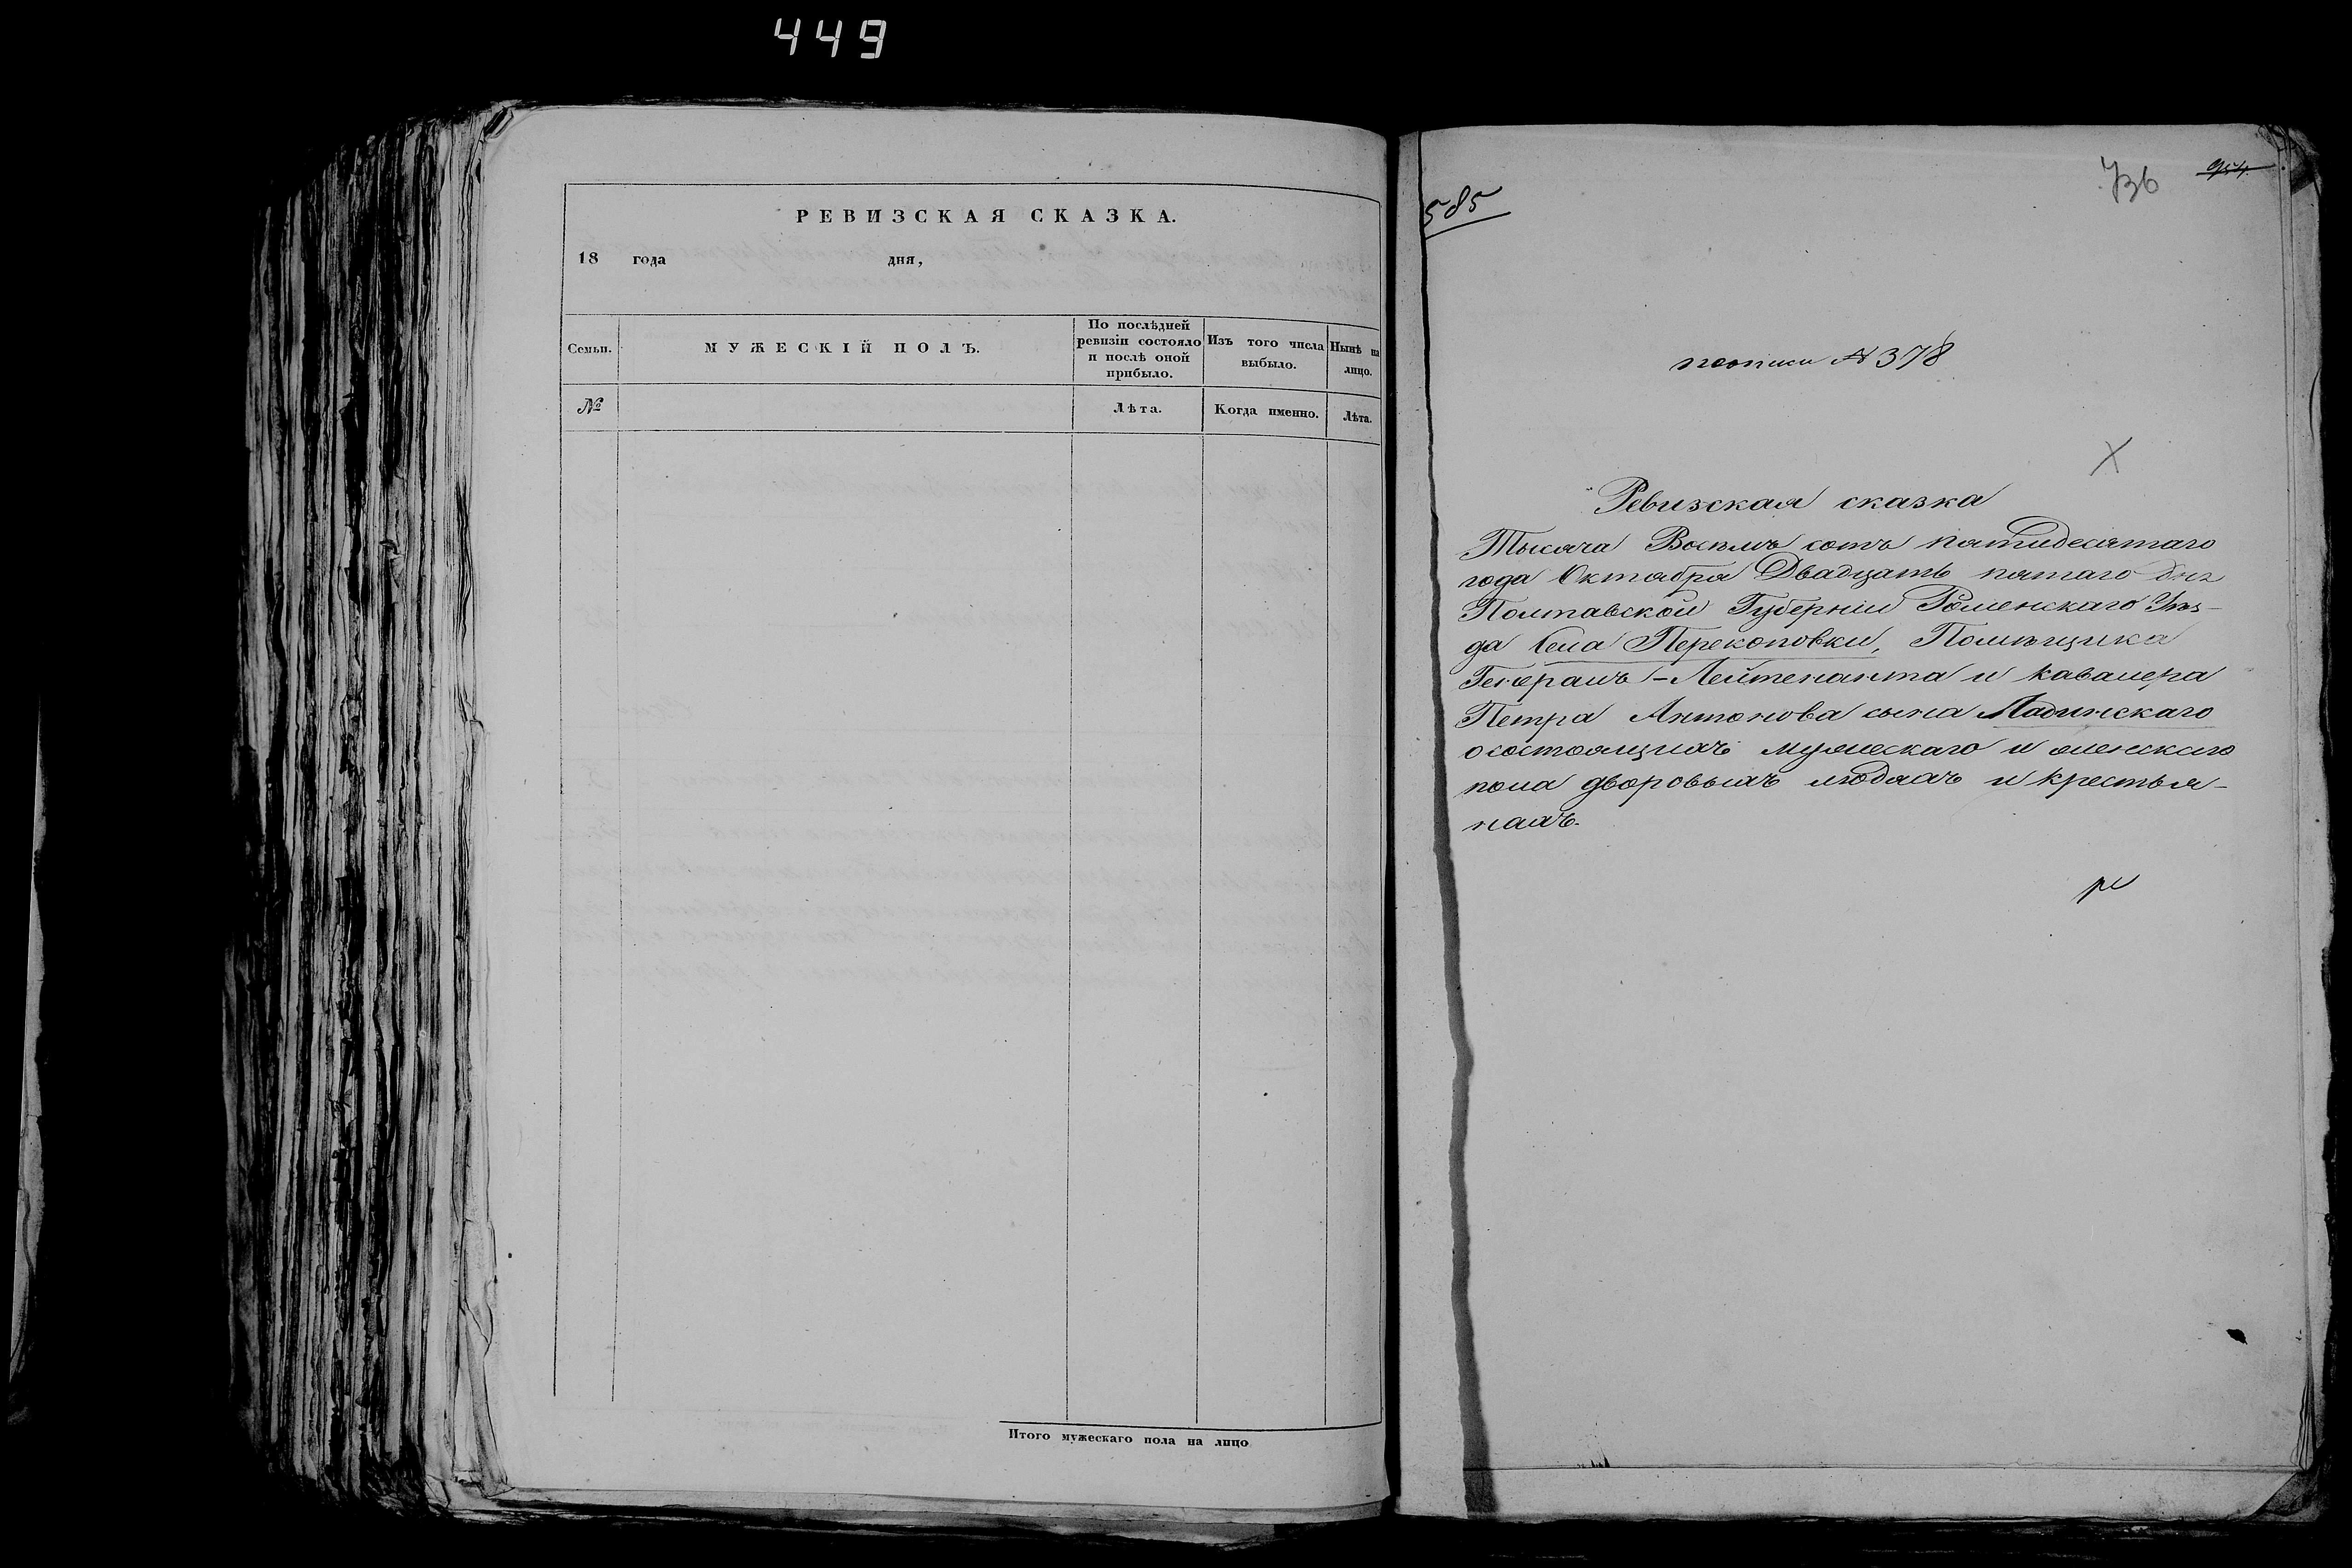 449
РЕВИЗСКАЯ СКАЗКА.
18 года дня,
Семьи.
МУЖЕСКІЙ ПОЛЪ.
По послѣдней
ревизіи состояло
и послѣ оной
прибыло.
Изъ того числа
выбыло.
Нынѣ на
лицо.
№
Лѣта.
Когда именно.
Лѣта.
Итого мужескаго пола на лицо
736
954
585
пописи № 378
Ревизская сказка
Тысяча Восемь сотъ пятидесятаго
года Октября Двадцать пятаго дня
Полтавской Губерніи Роменскаго Уѣз-
да Села Перекоповки, Помѣщика
Генералъ-Лейтенанта и кавалера
Петра Антонова сына Ладинскаго
о состоящихъ мужескаго и женскаго
пола дворовыхъ людяхъ и крестья-
нахъ.